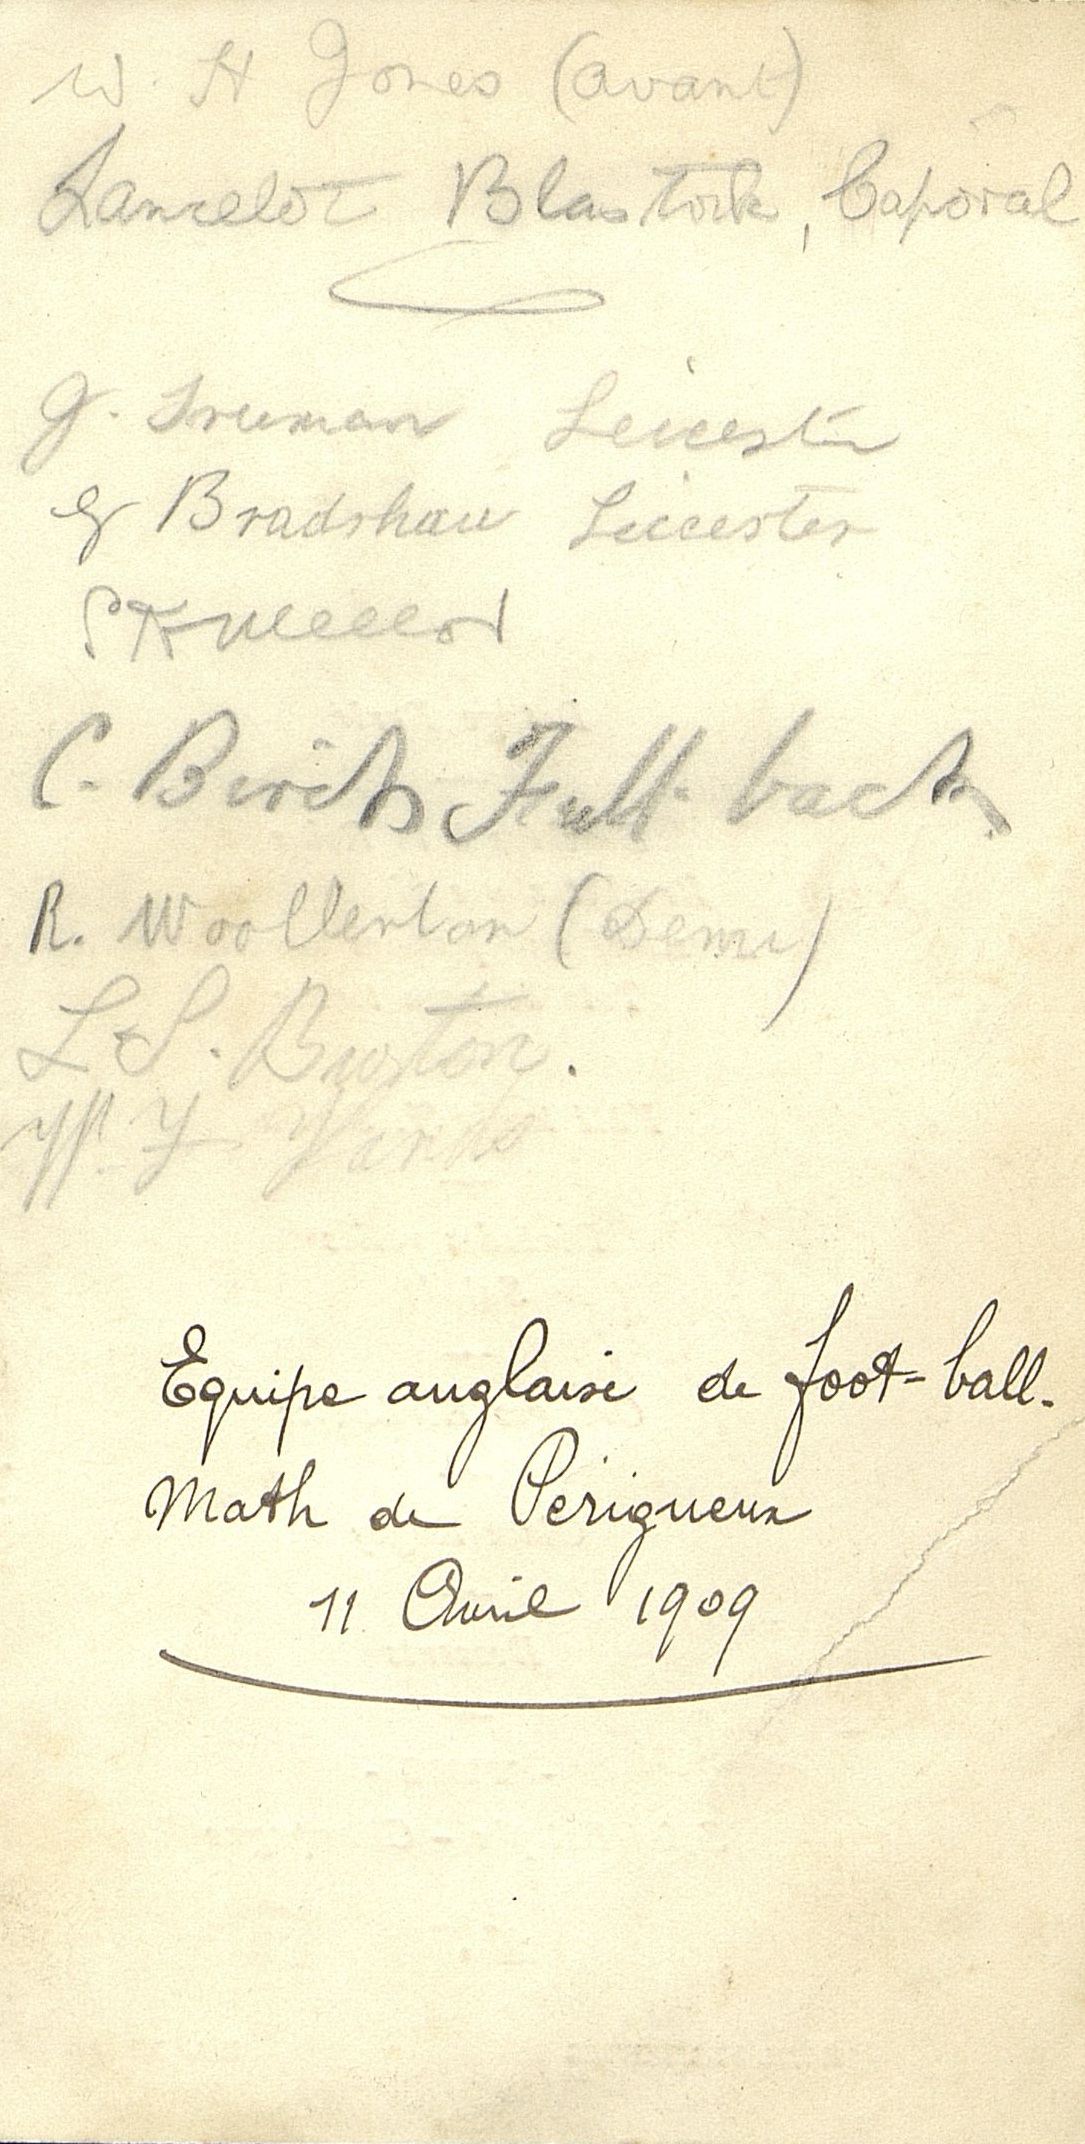 W. H Jones (avant)
Lancelot Caporal
G. Truman Leicester
G Bradshaw Leicester
C. Birch Full back
R. Woollerton (Demi)
L. S. Burton.
W. F
Equipe anglaise de foot-ball.
Math de Périgueux
11 Avril 1909